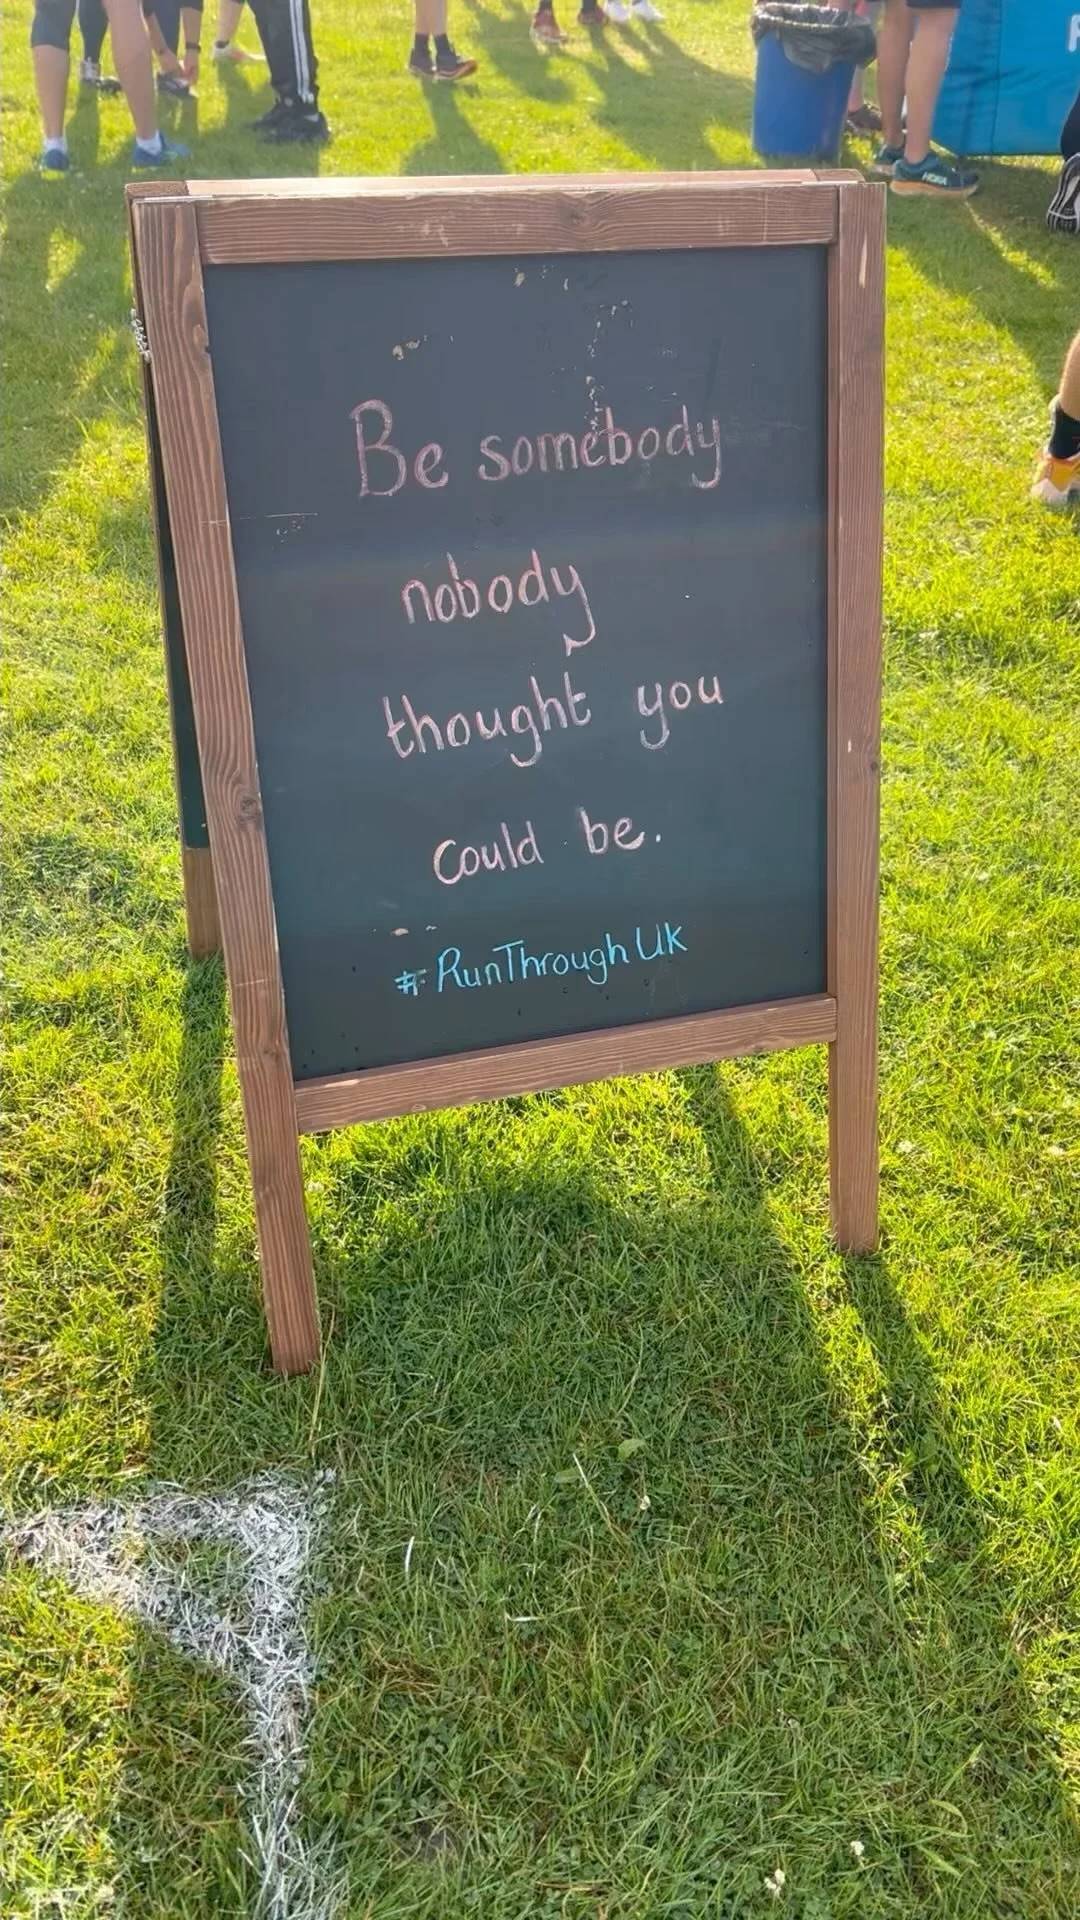 Be somebody
nobody
thought you
could be.
#RunThrough UK
HOKA